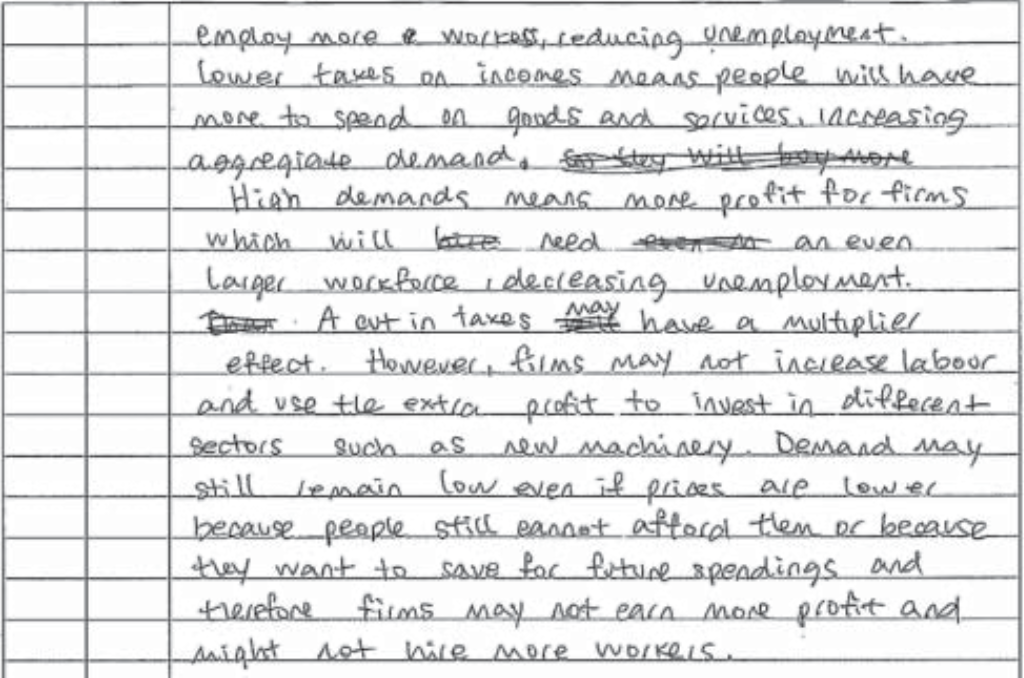 employ more workess, reducing unemployment.
lower taxes on incomes means people will have
more to spend on goods and services, increasing
aggregiate demand. so they will buy more
High demands means more profit for firms
which will hire need even m an even
larger workforce, decreasing unemployment.
A cut in taxes may have a multiplier
effect. However, firms may not increase labour
and use the extra profit to invest in different
sectors such as new machinery. Demand may
still remain low even if prices are lower
because people still cannot afford them or because
they want to save for future spendings and
therefore firms may not earn more profit and
might not hire more workers.